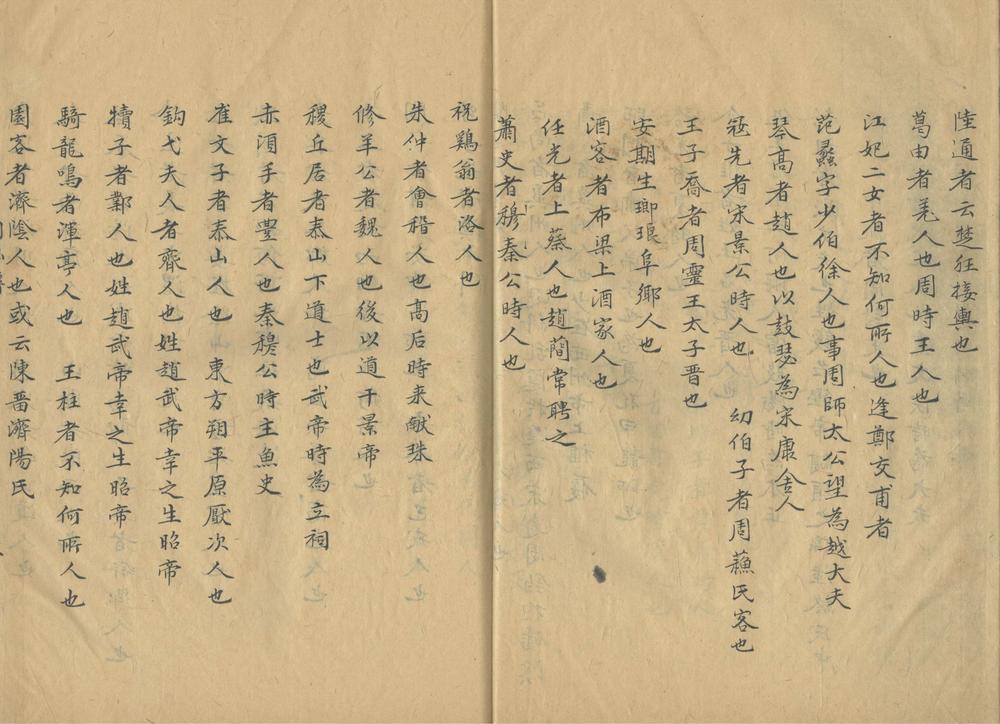 陸通者云楚狂接輿也
葛由者羌人也周時王人也
江妃二女者不知何所人也逢鄭交甫者
范蠡字少伯徐人也事周師太公望為越大夫
琴高者趙人也以鼓瑟為宋康舍人
冦先者宋景公時人也 幼伯子者周蘓氏客也
王子喬者周靈王太子晋也
安期生瑯琅阜鄉人也
酒客者布梁上酒家人也
任光者上蔡人也趙蕳常聘之
蕭史者穆秦公時人也
祝鷄翁者洛人也
朱仲者會稽人也高后時来献珠
修羊公者魏人也後以道干景帝
稷丘居者泰山下道士也武帝時為立祠
赤湏手者豐人也秦穆公時主魚史
崔文子者泰山人也 東方朔平原厭次人也
鈎弋夫人者齊人也姓趙武帝幸之生昭帝
犢子者鄴人也姓趙武帝幸之生昭帝
騎龍鳴者渾亭人也 王柱者不知何所人也
園客者濟陰人也或云陳畱濟陽氏